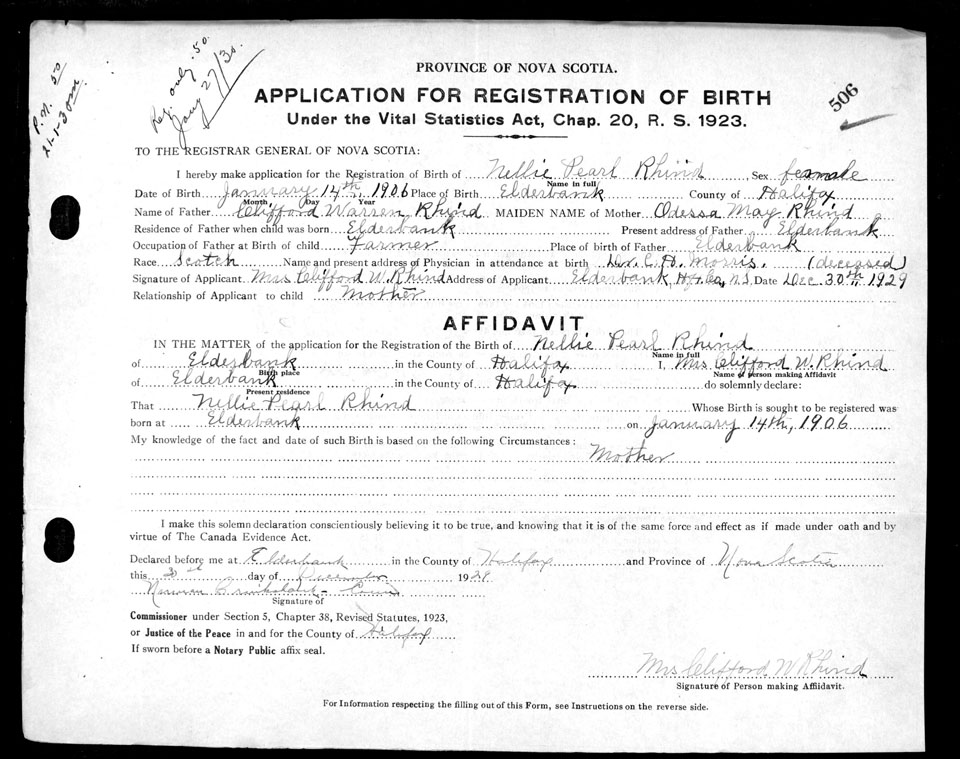 P.N. 50
21-1-30
Reg. only .50.
Jany 27/30.
506
PROVINCE OF NOVA SCOTIA.
APPLICATION FOR REGISTRATION OF BIRTH
Under the Vital Statistics Act, Chap. 20, R. S. 1923.
TO THE REGISTRAR GENERAL OF NOVA SCOTIA:
I hereby make application for the Registration of Birth of Nellie Pearl Rhind Sex female
Name in full
Date of Birth January 14th, 1906 Place of Birth Elderbank County of Halifax
Month Day Year
Name of Father Clifford Warren Rhind MAIDEN NAME of Mother Odessa May Rhind
Residence of Father when child was born Elderbank Present address of Father Elderbank
Occupation of Father at Birth of child Farmer Place of birth of Father Elderbank
Race Scotch Name and present address of Physician in attendance at birth Dr. C. H. Morris. (deceased)
Signature of Applicant Mrs Clifford W. Rhind Address of Applicant Elderbank, Hfx. Co, N.S. Date Dec. 30th, 1929
Relationship of Applicant to child Mother
AFFIDAVIT
IN THE MATTER of the application for the Registration of the Birth of Nellie Pearl Rhind
Name in full
of Elderbank in the County of Halifax I, Mrs Clifford W. Rhind
Birth place Name of person making Affidavit
of Elderbank in the County of Halifax do solemnly declare:
Present residence
That Nellie Pearl Rhind Whose Birth is sought to be registered was
born at Elderbank on January 14th, 1906
My knowledge of the fact and date of such Birth is based on the following Circumstances:
Mother
I make this solemn declaration conscientiously believing it to be true, and knowing that it is of the same force and effect as if made under oath and by
virtue of The Canada Evidence Act.
Declared before me at Elderbank in the County of Halifax and Province of Nova Scotia
this day of December 1929.
Signature of
Commissioner under Section 5, Chapter 38, Revised Statutes, 1923,
or Justice of the Peace in and for the County of Halifax
If sworn before a Notary Public affix seal.
Mrs Clifford W Rhind
Signature of Person making Affidavit.
For Information respecting the filling out of this Form, see Instructions on the reverse side.